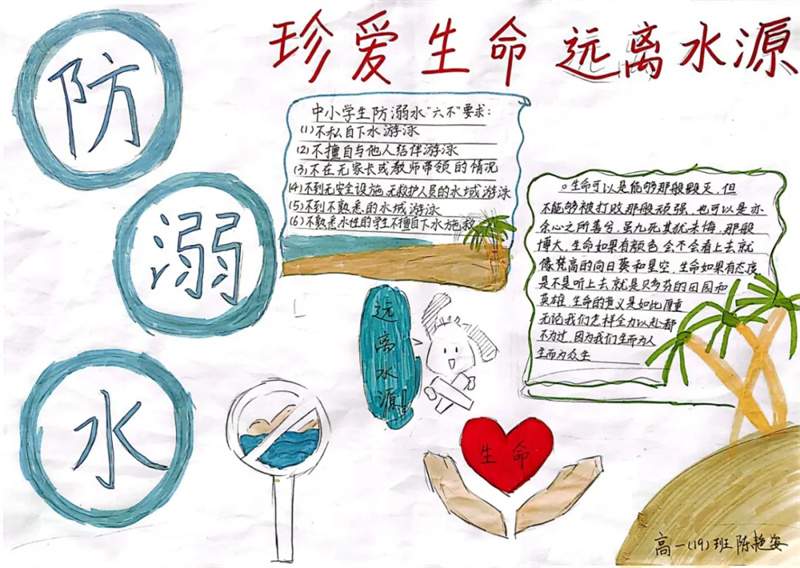 珍爱生命 远离水源
防
溺
水
中小学生防溺水"六不"要求:
(1)不私自下水游泳
(2)不擅自与他人结伴游泳
(3)不在无家长或教师带领的情况
(4)不到无安全设施、无救护人员的水域游泳
(5)不到不熟悉的水域游泳
(6)不熟悉水性的学生不擅自下水施救
。生命可以是能够那般毁灭,但
不能够被打败那般顽强,也可以是亦
余心之所善兮,虽九死其犹未悔,那般
博大,生命如果有颜色,会不会看上去就
像梵高的向日葵和星空,生命如果有态度
是不是听上去就是贝多芬的田园和
英雄,生命的意义是如此厚重
无论我们怎样全力以赴都
不为过,因为我们生而为人
生而为众生
远离水源
生命
高一(19)班 陈艳姿